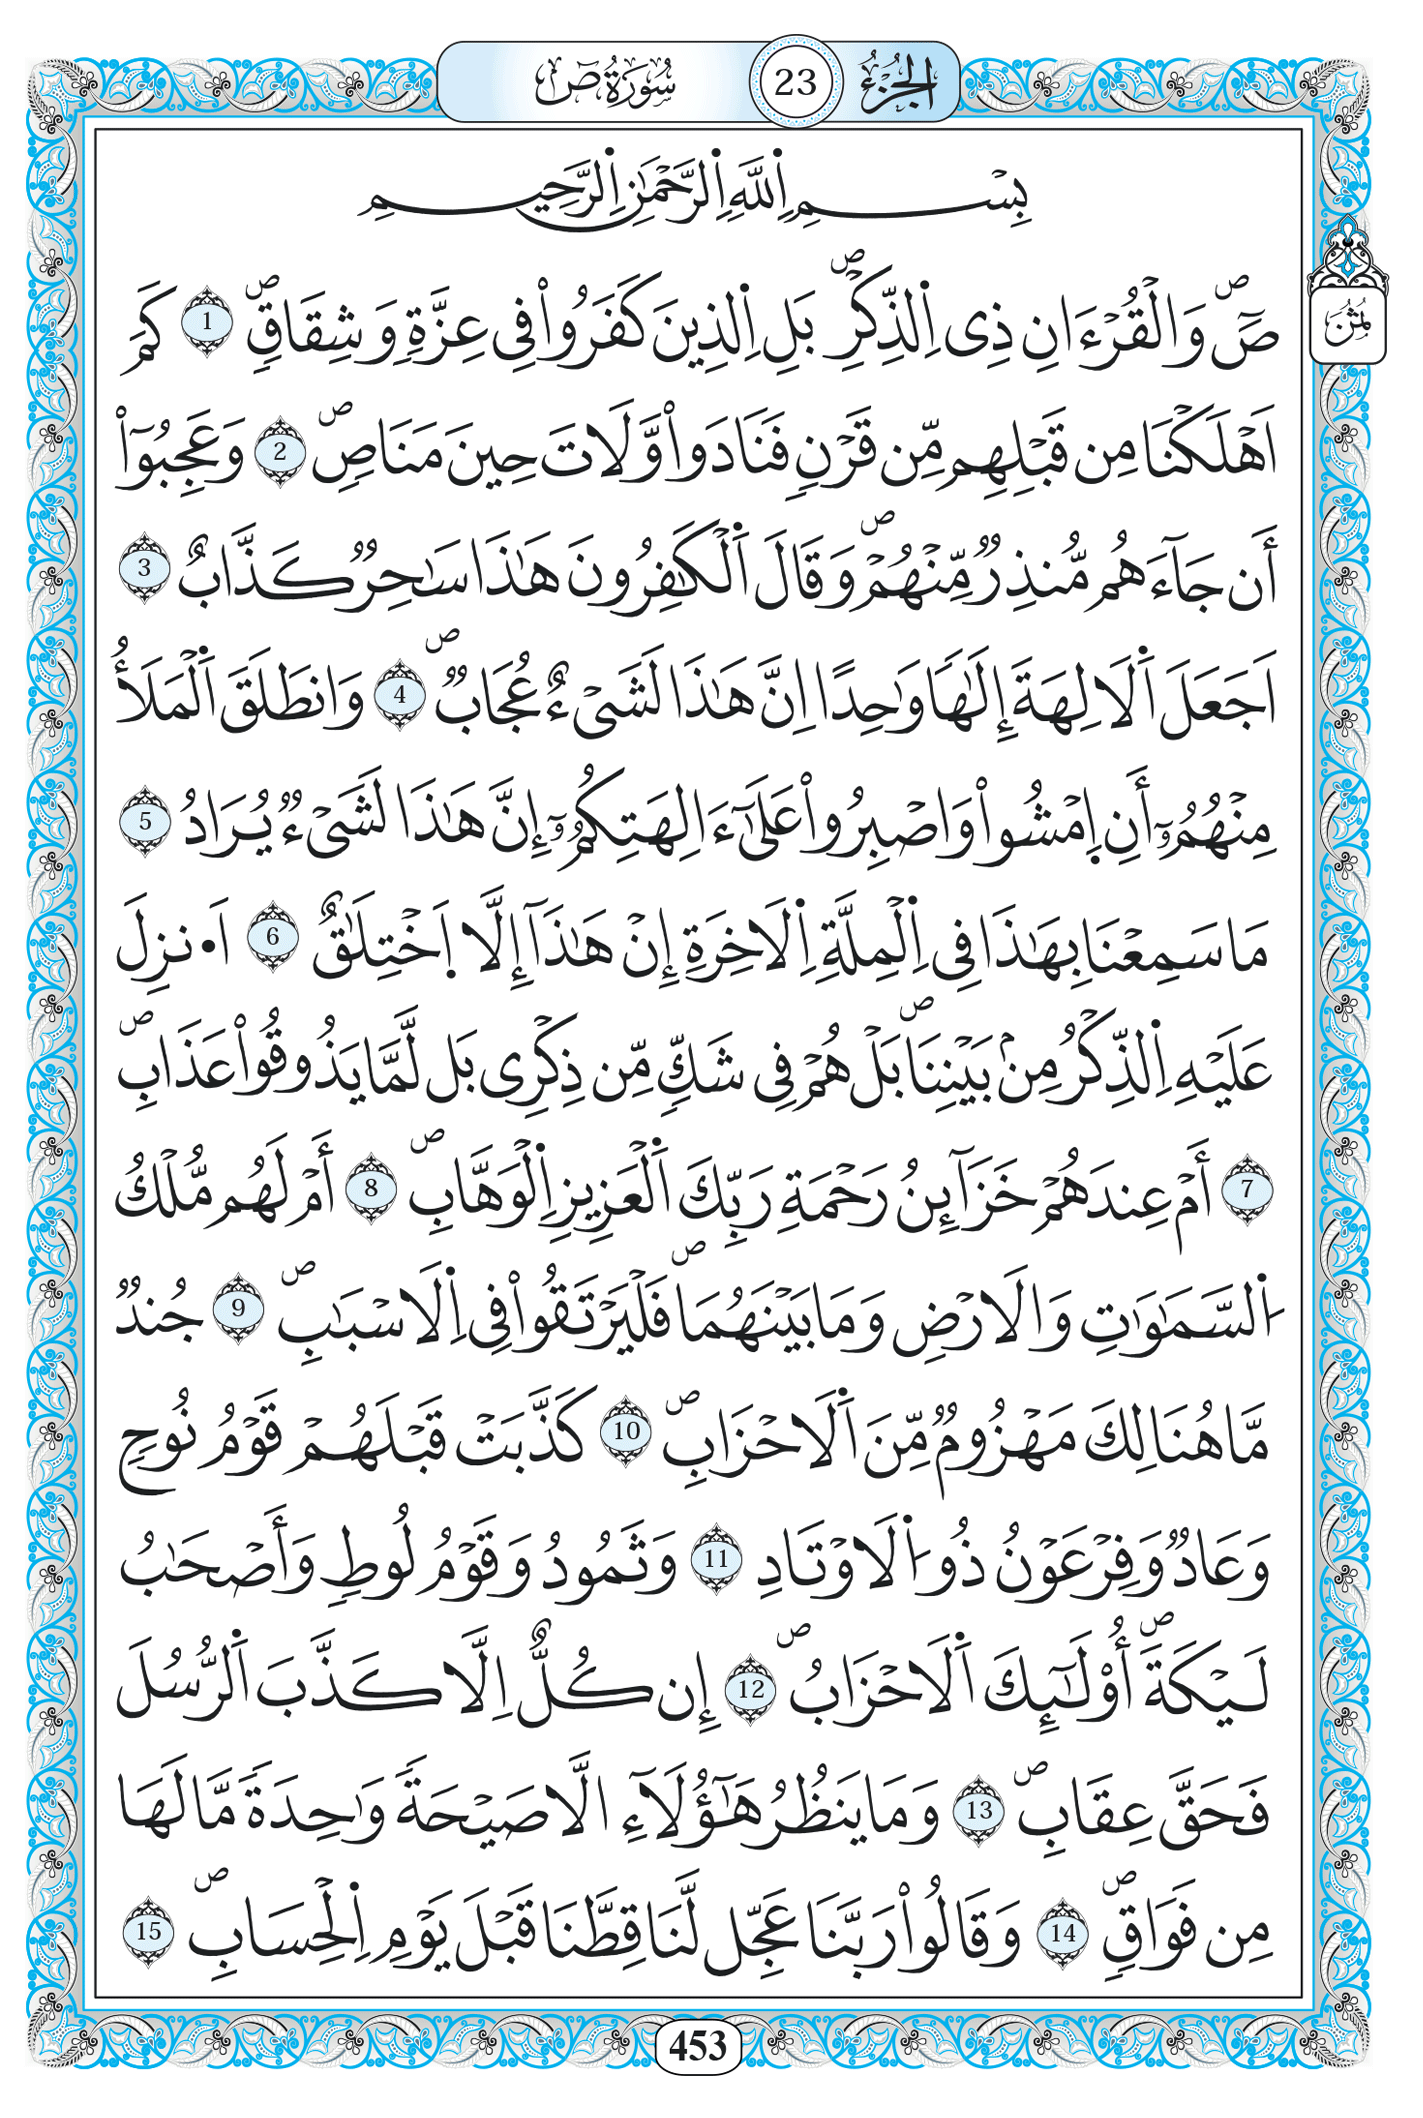 الجُزْءُ 23 سُورَةُ صٓ
بِسْمِ اِ۬للَّهِ اِ۬لرَّحْمَٰنِ اِ۬لرَّحِيمِ
ثُمُن
صٓۖ وَالْقُرْءَانِ ذِى اِ۬لذِّكْرِۖ بَلِ اِ۬لذِينَ كَفَرُواْ فِى عِزَّةٍ وَشِقَاقٍۖ 1 كَمَ
اَهْلَكْنَا مِن قَبْلِهِم مِّن قَرْنٍ فَنَادَواْ وَّلَاتَ حِينَ مَنَاصٍۖ 2 وَعَجِبُوٓاْ
أَن جَآءَهُم مُّنذِرٌ مِّنْهُمْۖ وَقَالَ اَ۬لْكَٰفِرُونَ هَٰذَا سَٰحِرٌ كَذَّابٌ 3
اَجَعَلَ اَ۬لَالِهَةَ إِلَٰهاً وَٰحِدًا اِنَّ هَٰذَا لَشَىْءٌ عُجَابٌۖ 4 وَانطَلَقَ اَ۬لْمَلَأُ
مِنْهُمُۥٓ أَنِ اِ۪مْشُواْ وَاصْبِرُواْ عَلَىٰٓ ءَالِهَتِكُمُۥٓ إِنَّ هَٰذَا لَشَىْءٌ يُرَادُ 5
مَا سَمِعْنَا بِهَٰذَا فِى اِ۬لْمِلَّةِ اِ۬لَاخِرَةِ إِنْ هَٰذَآ إِلَّا اَ۪خْتِلَٰقٌ 6 اَ•۟نزِلَ
عَلَيْهِ اِ۬لذِّكْرُ مِنۢ بَيْنِنَاۖ بَلْ هُمْ فِى شَكٍّ مِّن ذِكْرِى بَل لَّمَّا يَذُوقُواْ عَذَابِۖ
7 أَمْ عِندَهُمْ خَزَآئِنُ رَحْمَةِ رَبِّكَ اَ۬لْعَزِيزِ اِ۬لْوَهَّابِۖ 8 أَمْ لَهُم مُّلْكُ
اُ۬لسَّمَٰوَٰتِ وَالَارْضِ وَمَا بَيْنَهُمَاۖ فَلْيَرْتَقُواْ فِى اِ۬لَاسْبَٰبِۖ 9 جُندٌ
مَّا هُنَالِكَ مَهْزُومٌ مِّنَ اَ۬لَاحْزَابِۖ 10 كَذَّبَتْ قَبْلَهُمْ قَوْمُ نُوحٍ
وَعَادٌ وَفِرْعَوْنُ ذُو اُ۬لَاوْتَادِ 11 وَثَمُودُ وَقَوْمُ لُوطٍ وَأَصْحَٰبُ
لَيْكَةَۖ أُوْلَٰٓئِكَ اَ۬لَاحْزَابُۖ 12 إِن كُلٌّ اِلَّا كَذَّبَ اَ۬لرُّسُلَ
فَحَقَّ عِقَابِۖ 13 وَمَا يَنظُرُ هَٰٓؤُلَآءِ الَّا صَيْحَةً وَٰحِدَةً مَّا لَهَا
مِن فَوَاقٍۖ 14 وَقَالُواْ رَبَّنَا عَجِّل لَّنَا قِطَّنَا قَبْلَ يَوْمِ اِ۬لْحِسَابِۖ 15
453